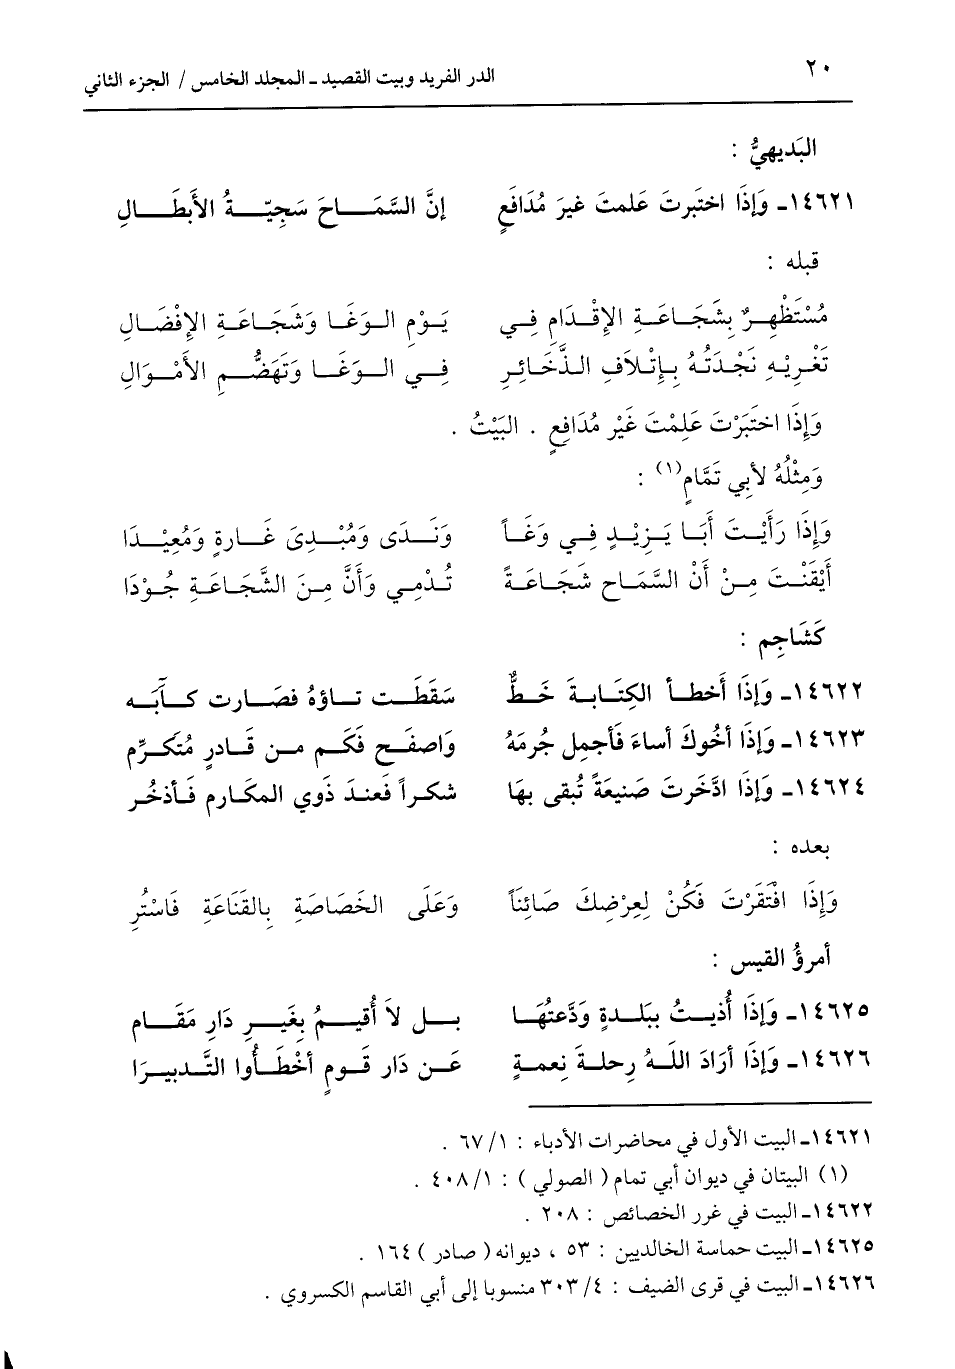 ٢٠ الدر الفريد وبيت القصيد ـ المجلد الخامس / الجزء الثاني
البَديهيُّ :
١٤٦٢١ـ وَإِذَا اختَبرتَ عَلمتَ غيرَ مُدَافَعٍ إنَّ السَّمَاحَ سَجِيّةُ الأَبطَالِ
قبله :
مُسْتَظْهِرٌ بِشَجَاعَةِ الإِقْدَامِ فِي يَوْمِ الوَغَا وَشَجَاعَةِ الإِفْضَالِ
تَغْرِيْهِ نَجْدَتُهُ بِإِتْلَافِ الذَّخَائِرِ فِي الوَغَا وَتَهَضُّمِ الأَمْوَالِ
وَإِذَا اختَبَرْتَ عَلِمْتَ غَيْر مُدَافِعٍ . البَيْتُ .
وَمِثْلُهُ لأبِي تَمَّامٍ(١) :
وَإِذَا رَأَيْتَ أَبَا يَزِيْدٍ فِي وَغَاً وَنَدَى وَمُبْدِىَ غَارةٍ وَمُعِيْدَا
أَيْقَنْتَ مِنْ أَنْ السَّمَاحِ شَجَاعَةً تُدْمِي وَأَنَّ مِنَ الشَّجَاعَةِ جُوْدَا
كَشَاجِم :
١٤٦٢٢ـ وَإِذَا أَخطأ الكِتَابةَ خَطٌّ سَقَطَت تاؤهُ فصَارت كآبَه
١٤٦٢٣ـ وَإِذَا أخُوكَ أساءَ فَأجمِل جُرمَهُ وَاصفَح فَكَم من قَادرٍ مُتَكرِّم
١٤٦٢٤ـ وَإِذَا ادَّخَرتَ صَنيعَةً تُبقى بهَا شكراً فَعندَ ذَوي المكارم فَأذخُر
بعده :
وَإِذَا افْتَقَرْتَ فَكُنْ لِعِرْضِكَ صَائِنَاً وَعَلَى الخَصَاصَةِ بِالقَنَاعَةِ فَاسْتُرِ
أمرؤُ القيس :
١٤٦٢٥ـ وَإِذَا أُذيتُ ببَلدةٍ وَدَّعتُهَا بل لاَ أُقيمُ بِغَيرِ دَارِ مَقَام
١٤٦٢٦ـ وَإِذَا أرَادَ اللَهُ رِحلةَ نِعمةٍ عَن دَار قَومٍ أخْطَأُوا التَّدبيرَا
١٤٦٢١ـ البيت الأول في محاضرات الأدباء : ٦٧/١ .
(١) البيتان في ديوان أبي تمام ( الصولي ) : ٤٠٨/١ .
١٤٦٢٢ـ البيت في غرر الخصائص : ٢٠٨ .
١٤٦٢٥ـ البيت حماسة الخالديين : ٥٣ ، ديوانه ( صادر ) ١٦٤ .
١٤٦٢٦ـ البيت في قرى الضيف : ٣٠٣/٤ منسوبا إلى أبي القاسم الكسروي .